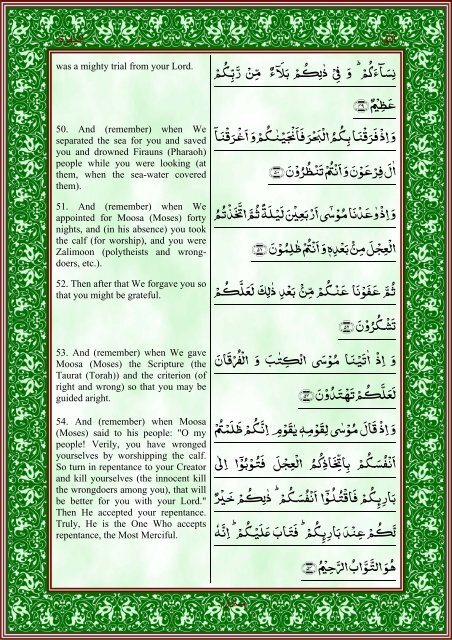 was a mighty trial from your Lord.
نِسَآءَكُمْ ؕ وَ فِیْ ذٰلِكُمْ بَلَآءٌ مِّنْ رَّبِّكُمْ
عَظِیْمٌ
50. And (remember) when We
separated the sea for you and saved
you and drowned Firauns (Pharaoh)
people while you were looking (at
them, when the sea-water covered
them).
وَ اِذْ فَرَقْنَا بِكُمُ الْبَحْرَ فَاَنْجَیْنٰكُمْ وَ اَغْرَقْنَاۤ
اٰلَ فِرْعَوْنَ وَ اَنْتُمْ تَنْظُرُوْنَ
51. And (remember) when We
appointed for Moosa (Moses) forty
nights, and (in his absence) you took
the calf (for worship), and you were
Zalimoon (polytheists and wrong-
doers, etc.).
وَ اِذْ وٰعَدْنَا مُوْسٰۤی اَرْبَعِیْنَ لَیْلَةً ثُمَّ اتَّخَذْتُمُ
الْعِجْلَ مِنْۢ بَعْدِهٖ وَ اَنْتُمْ ظٰلِمُوْنَ
52. Then after that We forgave you so
that you might be grateful.
ثُمَّ عَفَوْنَا عَنْكُمْ مِّنْۢ بَعْدِ ذٰلِكَ لَعَلَّكُمْ
تَشْكُرُوْنَ
53. And (remember) when We gave
Moosa (Moses) the Scripture (the
Taurat (Torah)) and the criterion (of
right and wrong) so that you may be
guided aright.
وَ اِذْ اٰتَیْنَا مُوْسَی الْكِتٰبَ وَ الْفُرْقَانَ
لَعَلَّكُمْ تَهْتَدُوْنَ
54. And (remember) when Moosa
(Moses) said to his people: "O my
people! Verily, you have wronged
yourselves by worshipping the calf.
So turn in repentance to your Creator
and kill yourselves (the innocent kill
the wrongdoers among you), that will
be better for you with your Lord."
Then He accepted your repentance.
Truly, He is the One Who accepts
repentance, the Most Merciful.
وَ اِذْ قَالَ مُوْسٰی لِقَوْمِهٖ یٰقَوْمِ اِنَّكُمْ ظَلَمْتُمْ
اَنْفُسَكُمْ بِاتِّخَاذِكُمُ الْعِجْلَ فَتُوْبُوْۤا اِلٰی
بَارِىِٕكُمْ فَاقْتُلُوْۤا اَنْفُسَكُمْ ؕ ذٰلِكُمْ خَیْرٌ
لَّكُمْ عِنْدَ بَارِىِٕكُمْ ؕ فَتَابَ عَلَیْكُمْ ؕ اِنَّهٗ
هُوَ التَّوَّابُ الرَّحِیْمُ